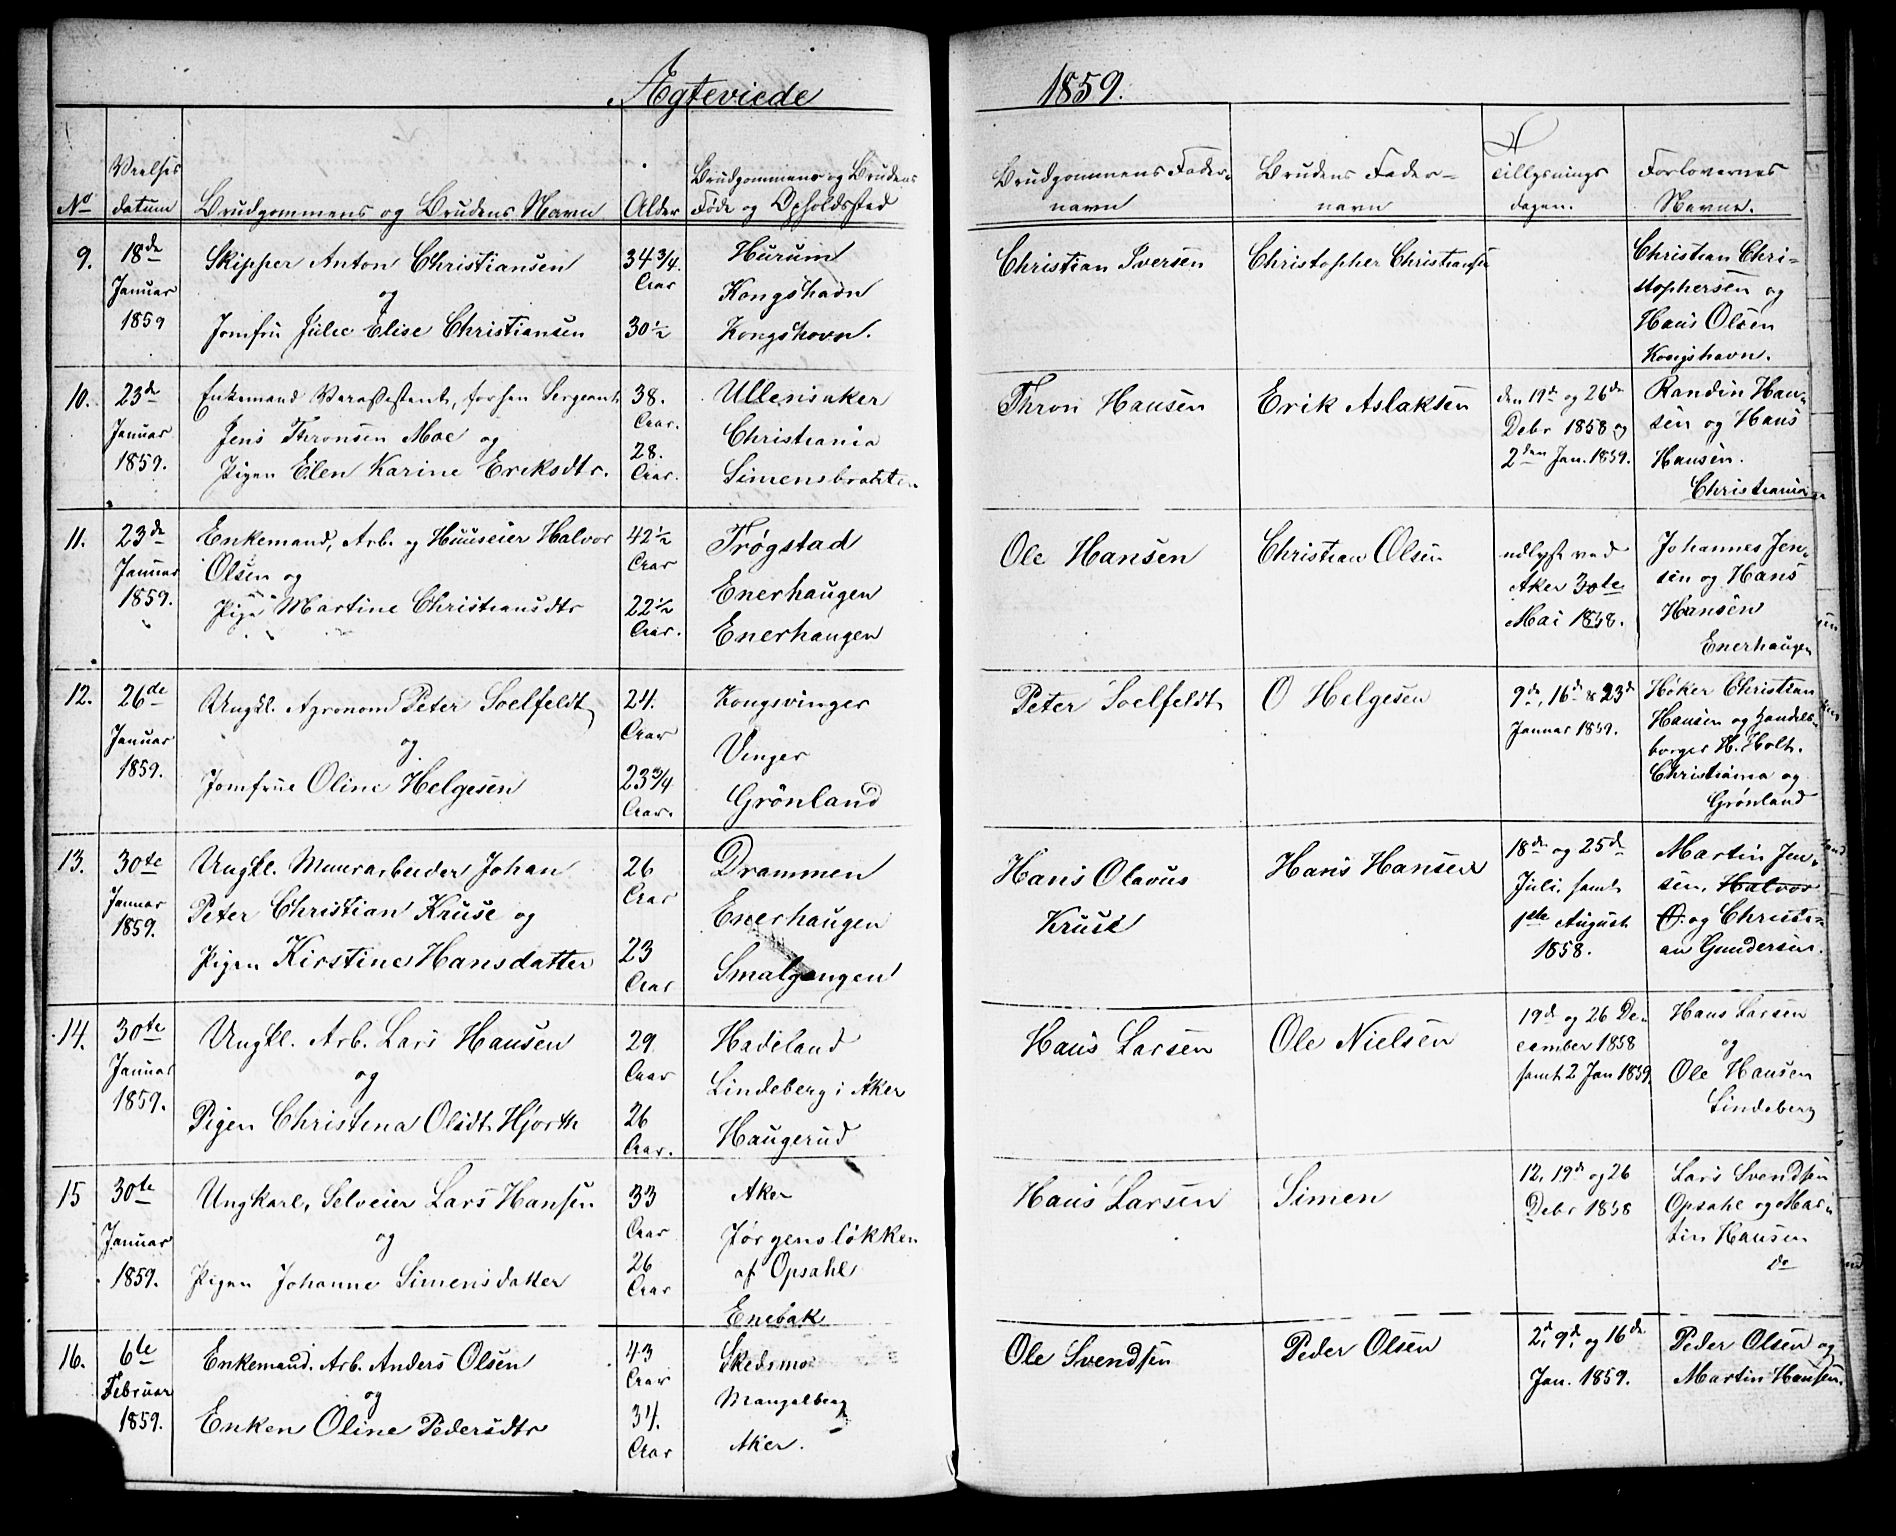 Ægteviede 1859.
No
Vielses datum
Brudgommens og Brudens Navn
Alder
Brudgommens og Brudens Føde og Opholdssted
Brudgommens Fader-navn
Brudens Fader-navn
Tillysnings dagen.
Forlovernes Navne.
9.
18de Januar 1859
Skipper Anton Christiansen
og
Jomfru Julie Elise Christiansen
34 3/4. Aar
30 1/2
Hurum
Kongshavn
Kongshavn.
Christian Iversen
Christopher Christiansen
Christian Chri-
stophersen og
Hans Olsen
Kongshavn.
10.
23de Januar 1859.
Enkemand forhen Sergeant
Jens Thronsen Moe og
Pigen Ellen Karine Eriksdtr.
38. Aar.
28. Aar.
Ullensaker
Christiania
Simensbraaten
Thron Hansen
Erik Aslaksen
den 19de og 26de
Debr 1858 og
2den Jan. 1859.
Randin Han-
sen og Hans
Hansen.
Christiania
11.
23de Januar 1859.
Enkemand, Arb. og Huuseier Halvor
Olsen og
Pige Martine Christiansdtr
42 1/2 Aar
22 1/2 Aar.
Trøgstad
Enerhaugen
Enerhaugen
Ole Hansen
Christian Olsen
udlyst ved
Aker 30te
Mai 1858.
Johannes Jen-
sen og Hans
Hansen
Enerhaugen
12.
26de Januar 1859.
Ungkl. Agronom Peter Soelfeldt
og
Jomfrue Oline Helgesen
24. Aar
23 3/4 Aar.
Kongsvinger
Vinger
Grönland
Peter Soelfeldt
O Helgesen
9de, 16de & 23de
Januar 1859.
Høker Christian
Hansen og Handels-
borger H. Holt.
Christiania og
Grønland
13.
30te Januar 1859.
Ungkl. Muurarbeider Johan
Peter Christian Kruse og
Pigen Kirstine Hansdatter
26 Aar
23 Aar
Drammen
Enerhaugen
Smalgangen
Hans Olavus
Kruse
Hans Hansen
18de og 25de
Juli, samt
1ste August
1858.
Martin Jen-
sen, Halvor
O. og Christi-
an Gundersen.
14.
30te Januar 1859.
Ungkl. Arb. Lars Hansen
og
Pigen Christina Olsdt. Hjorth
29 Aar
26 Aar.
Hadeland
Lindeberg i Aker
Haugerud
Hans Larsen
Ole Nielsen
19de og 26 De-
cember 1858
samt 2 Jan 1859.
Hans Larsen
og
Ole Hansen
Lindeberg
15
30te Januar 1859.
Ungkarl, Selveier Lars Hansen
og
Pigen Johanne Simensdatter
33 Aar
26 Aar
Aker
Jørgensløkken
af Opsahl
Enebak
Hans Larsen
Simen
12, 19de og 26
Debr 1858
Lars Svendsen
Opsahl og Mar-
tin Hansen
do
16.
6te Februar 1859.
Enkemand. Arb. Anders Olsen
og
Enken Oline Pedersdtr
43 Aar
34. Aar
Skedsmo
Mangelberg
Aker.
Ole Svendsen
Peder Olsen
2d, 9de og 16de
Jan. 1859.
Peder Olsen og
Martin Hansen.